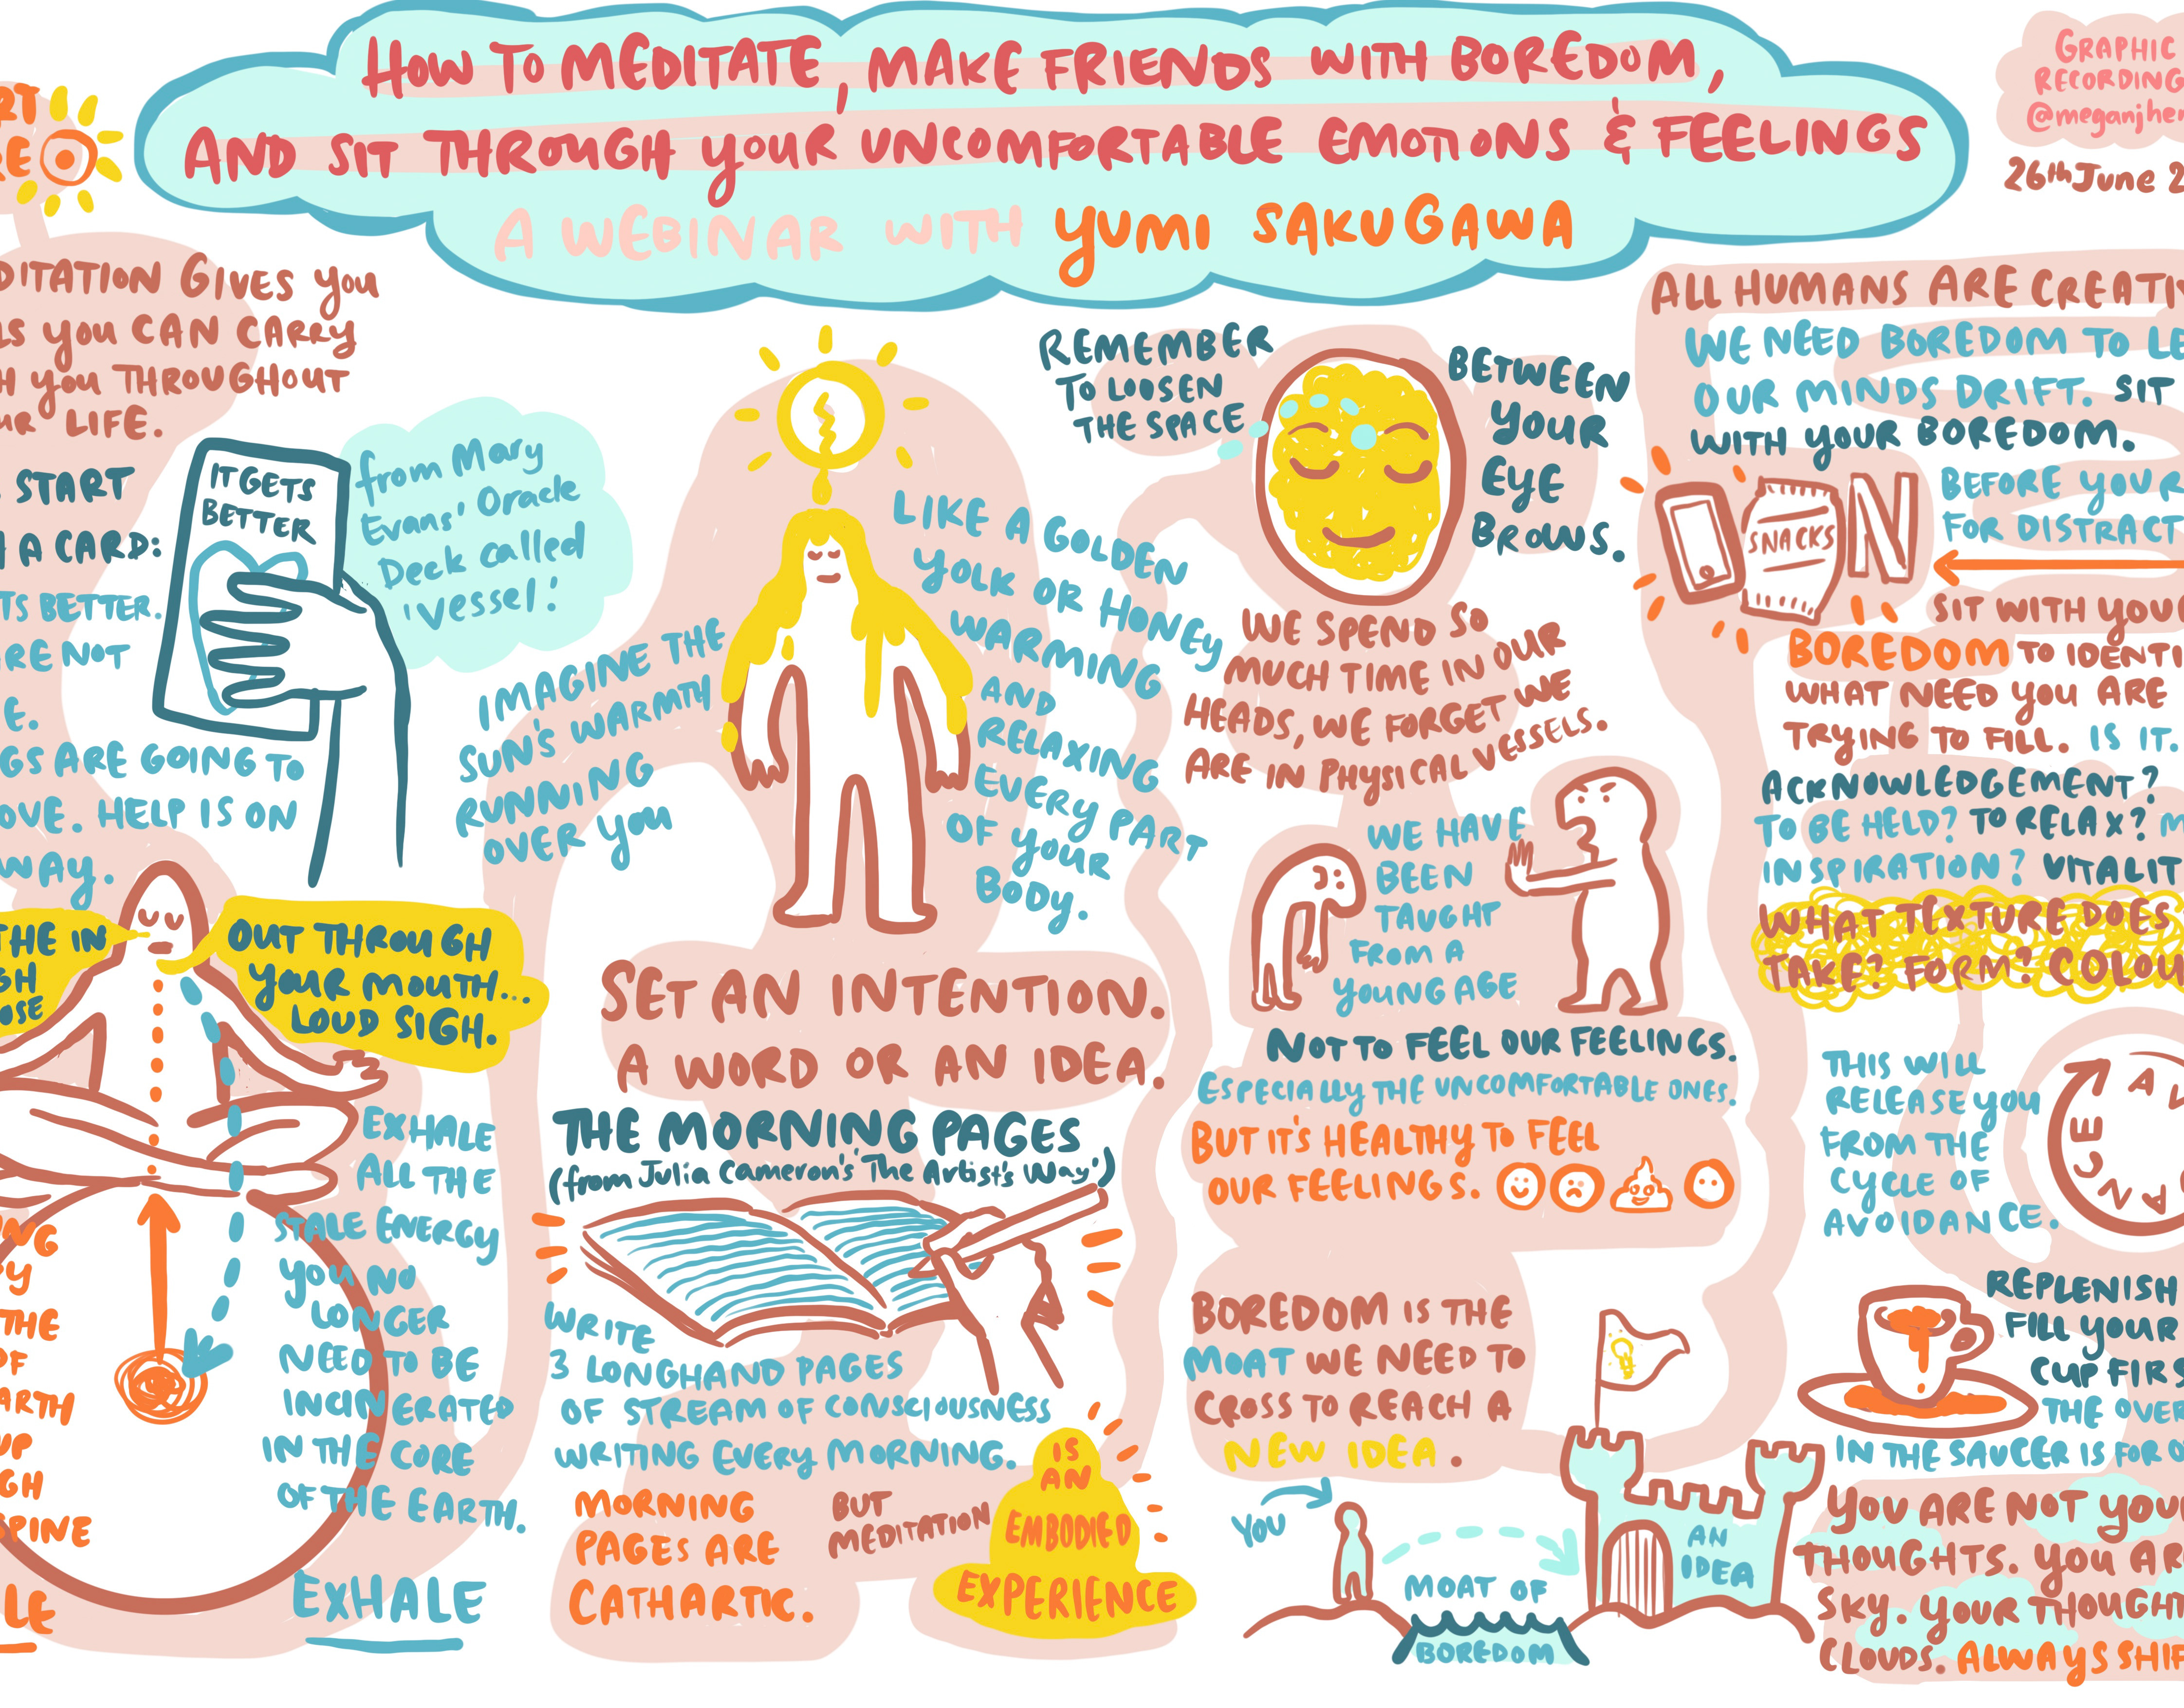 HOW TO MEDITATE, MAKE FRIENDS WITH BOREDOM,
AND SIT THROUGH YOUR UNCOMFORTABLE EMOTIONS & FEELINGS
A WEBINAR WITH YUMI SAKUGAWA
GRAPHIC
RECORDING
@meganjher
26th June 2
GIVES YOU
YOU CAN CARRY
YOU THROUGHOUT
LIFE.
START
A CARD:
BETTER.
NOT
ARE GOING TO
HELP IS ON
IT GETS
BETTER
from Mary
Evans' Oracle
Deck called
'Vessel'.
IN
OUT THROUGH
YOUR MOUTH...
LOUD SIGH.
EXHALE
ALL THE
STALE ENERGY
YOU NO
LONGER
NEED TO BE
INCINERATED
IN THE CORE
OF THE EARTH.
THE
UP
EXHALE
IMAGINE THE
SUN'S WARMTH
RUNNING
OVER YOU
LIKE A GOLDEN
YOLK OR HONEY
WARMING
AND
RELAXING
EVERY PART
OF YOUR
BODY.
SET AN INTENTION.
A WORD OR AN IDEA.
THE MORNING PAGES
(from Julia Cameron's 'The Artist's Way')
WRITE
3 LONGHAND PAGES
OF STREAM OF CONSCIOUSNESS
WRITING EVERY MORNING.
MORNING
PAGES ARE
CATHARTIC.
BUT
MEDITATION
IS
AN
EMBODIED
EXPERIENCE
REMEMBER
TO LOOSEN
THE SPACE
BETWEEN
YOUR
EYE
BROWS.
WE SPEND SO
MUCH TIME IN OUR
HEADS, WE FORGET WE
ARE IN PHYSICAL VESSELS.
WE HAVE
BEEN
TAUGHT
FROM A
YOUNG AGE
NOT TO FEEL OUR FEELINGS.
ESPECIALLY THE UNCOMFORTABLE ONES.
BUT IT'S HEALTHY TO FEEL
OUR FEELINGS.
BOREDOM IS THE
MOAT WE NEED TO
CROSS TO REACH A
NEW IDEA.
YOU
MOAT OF
BOREDOM
AN
IDEA
ALL HUMANS ARE
WE NEED BOREDOM TO
OUR MINDS DRIFT. SIT
WITH YOUR BOREDOM.
SNACKS
N
BEFORE YOUR
FOR DISTRACT
SIT WITH YOU
BOREDOM TO IDENTI
WHAT NEED YOU ARE
TRYING TO FILL. IS IT.
ACKNOWLEDGEMENT?
TO BE HELD? TO RELAX?
INSPIRATION? VITALIT
WHAT TEXTURE DOES
TAKE? FORM? COLOU
THIS WILL
RELEASE YOU
FROM THE
CYCLE OF
AVOIDANCE.
REPLENISH
FILL YOUR
CUP FIRS
THE OVER
IN THE SAUCER IS FOR
YOU ARE NOT YOU
THOUGHTS. YOU AR
SKY. YOUR THOUGHT
CLOUDS. ALWAYS SHIF